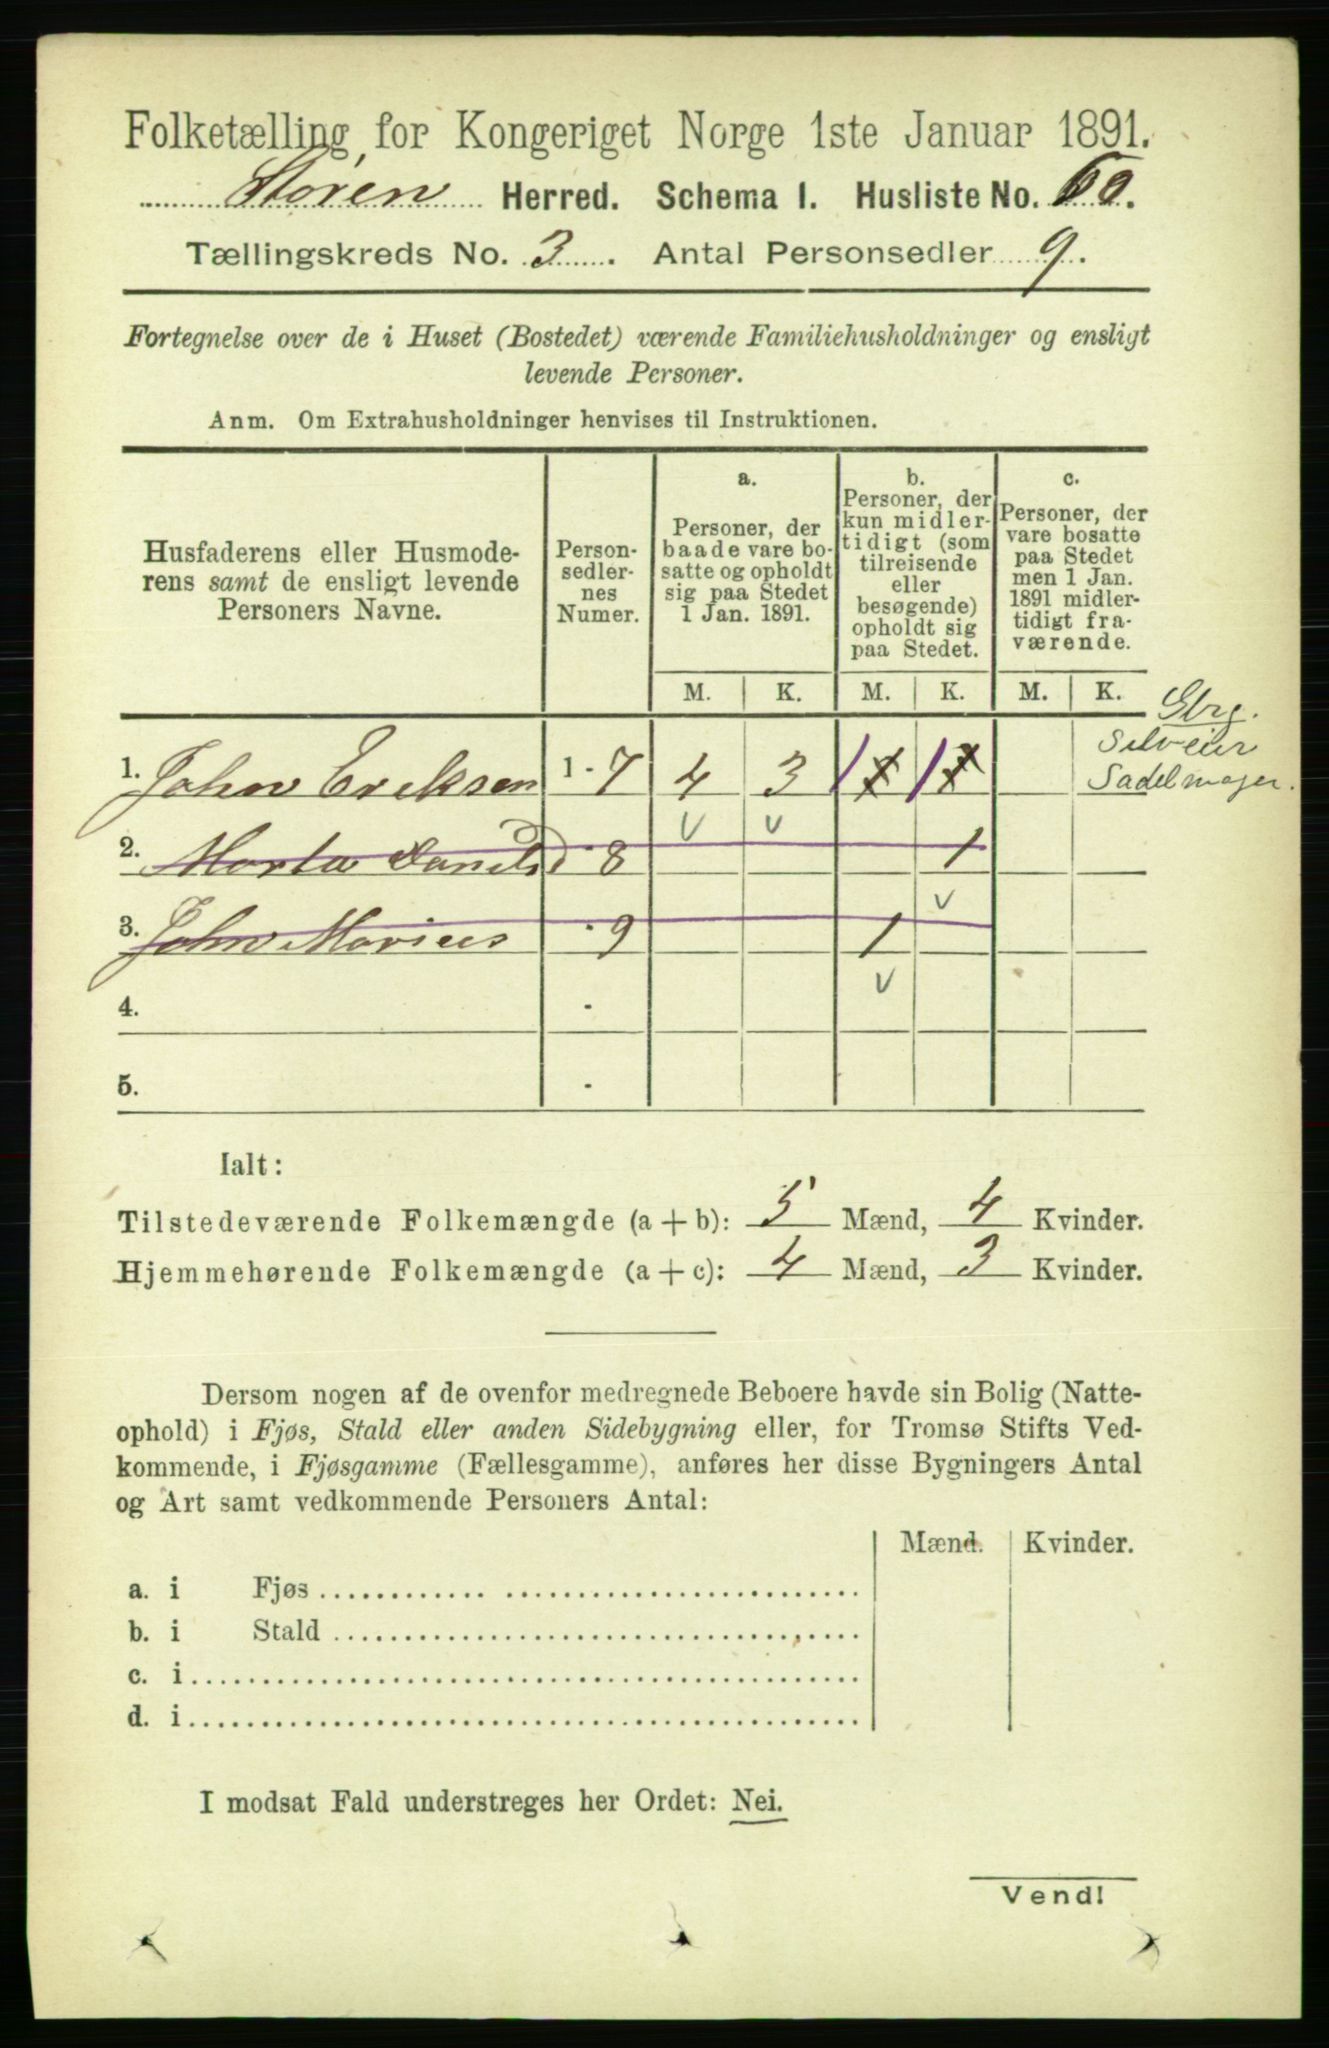 Folketælling for Kongeriget Norge 1ste Januar 1891.
Støren Herred. Schema I. Husliste No. 60.
Tællingskreds No. 3. Antal Personsedler 9.
Fortegnelse over de i Huset (Bostedet) værende Familiehusholdninger og ensligt
levende Personer.
Anm. Om Extrahusholdninger henvises til Instruktionen.
Husfaderens eller Husmode-
rens samt de ensligt levende
Personers Navne.
Person-
sedler-
nes
Numer.
a.
Personer, der
baade vare bo-
satte og opholdt
sig paa Stedet
1 Jan. 1891.
b.
Personer, der
kun midler-
tidigt (som
tilreisende
eller
besøgende)
opholdt sig
paa Stedet.
c.
Personer, der
vare bosatte
paa Stedet
men 1 Jan.
1891 midler-
tidigt fra-
værende.
M. K. M. K. M. K.
Gbrg.
Selveier
Sadelmager.
1. John Eriksen 1 - 7 4 3 1 1 1 1
v v
2. Marta Danielsd - 8 1
v
3. John Marius - 9 1
v
4. -
5. -
Ialt:
Tilstedeværende Folkemængde (a + b): 5 Mænd, 4 Kvinder.
Hjemmehørende Folkemængde (a + c): 4 Mænd, 3 Kvinder.
Dersom nogen af de ovenfor medregnede Beboere havde sin Bolig (Natte-
ophold) i Fjøs, Stald eller anden Sidebygning eller, for Tromsø Stifts Ved-
kommende, i Fjøsgamme (Fællesgamme), anføres her disse Bygningers Antal
og Art samt vedkommende Personers Antal:
Mænd. Kvinder.
a. i Fjøs
b. i Stald
c. i
d. i
I modsat Fald understreges her Ordet: Nei.
Vend!